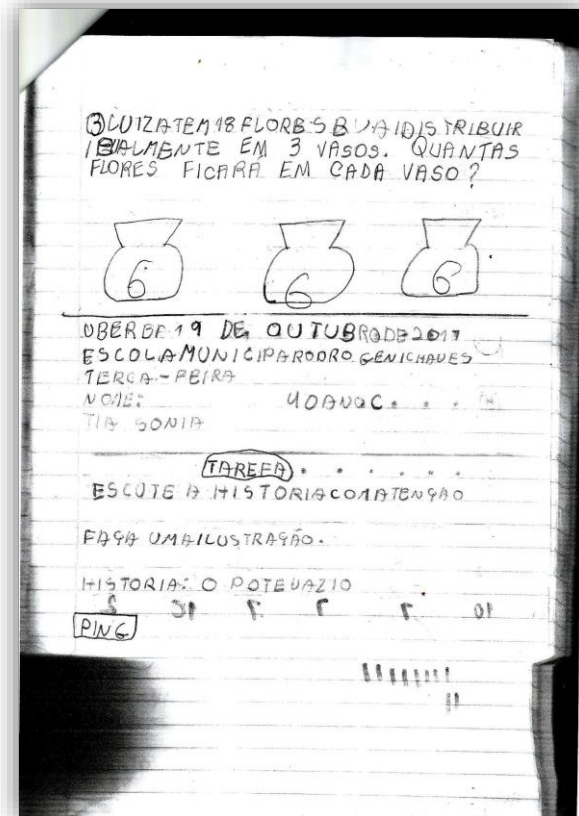 ③ LUIZA TEM 18 FLORES E VAI DISTRIBUIR
IGUALMENTE EM 3 VASOS. QUANTAS
FLORES FICARÁ EM CADA VASO?
6 6 6
UBERBE 19 DE OUTUBRO DE 2017
ESCOLA MUNICIPAR
TERCA-FEIRA
NOME: 4O ANO C
TIA SONIA
TAREFA
ESCUTE A HISTORIA COM ATENÇÃO
FAÇA UMA ILUSTRAÇÃO.
HISTORIA: O POTE VAZIO
PING